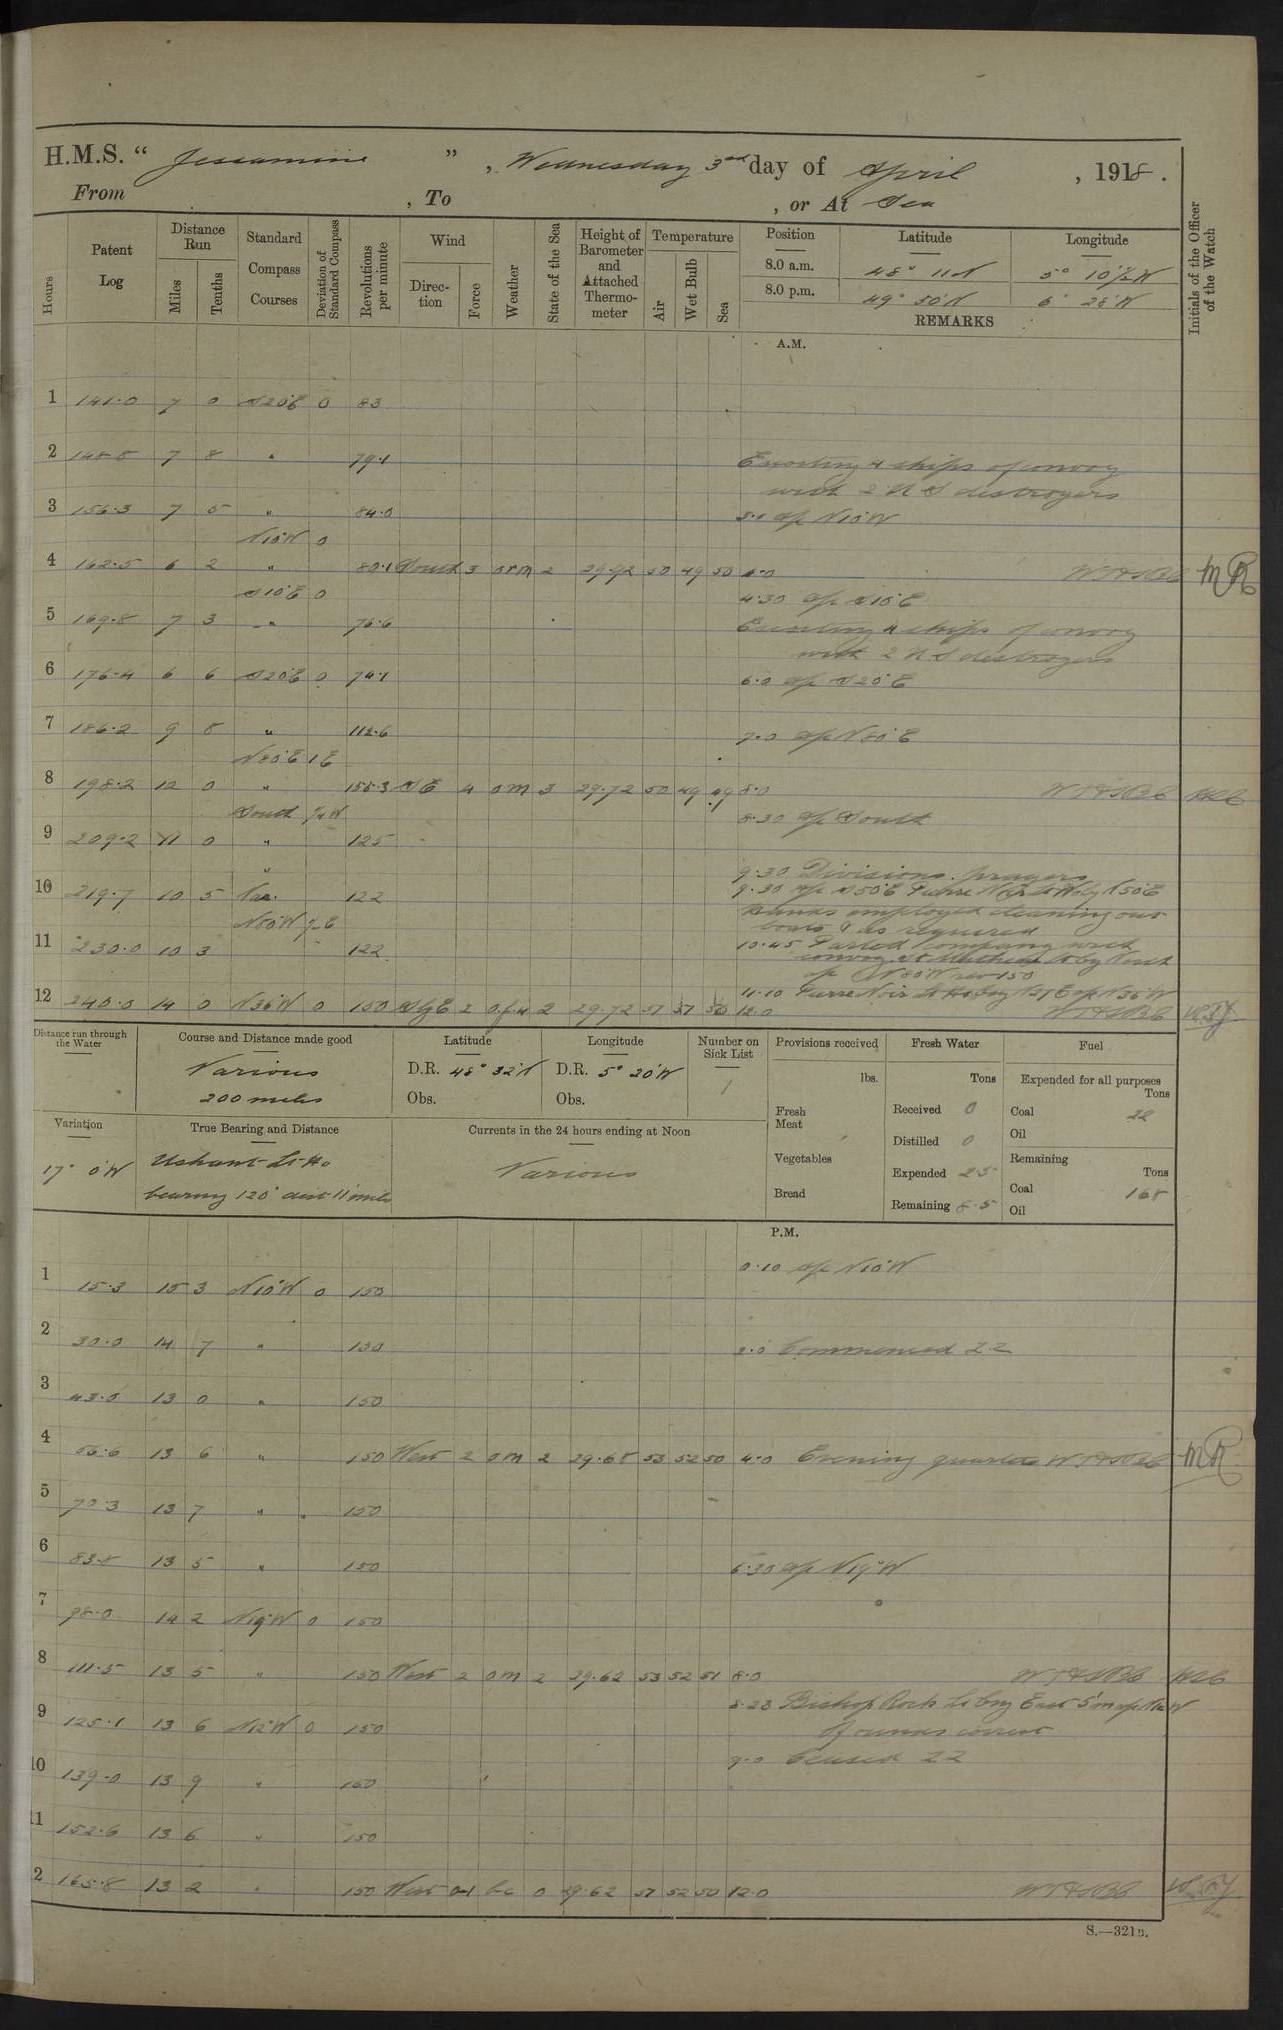 H.M.S. " Jessamine " , Wednesday 3rd day of April , 1918 .
From , To , or At Sea
Hours
Patent Log
Distance Run
Miles
Tenths
Standard Compass Courses
Deviation of Standard Compass
Revolutions per minute
Wind
Direction
Force
Weather
State of the Sea
Height of Barometer and Attached Thermometer
Temperature
Air
Wet Bulb
Sea
Position Latitude Longitude
8.0 a.m. 48° 11'N 5° 10½'W
8.0 p.m. 49° 50'N 6° 26'W
REMARKS
Initials of the Officer of the Watch
A.M.
1 141.0 7 0 S20°E 0 83
2 148.8 7 8 " 79.1
Escorting 4 ships of convoy
with 2 U S destroyers
3 156.3 7 5 " 84.0 3.0 a/c N10°W
N10°W 0
4 162.5 6 2 " 80.1 South 3 orm 2 29.92 50 49 50 4.0 MR
S10°E 0
4.30 a/c S10°E
5 169.8 7 3 " 76.6
Escorting 4 ships of convoy
with 2 U S destroyers
6 176.4 6 6 S20°E 0 74.1 6.0 a/c S20°E
7 186.2 9 8 " 112.6 7.0 a/c N80°E
N80°E 1E
8 198.2 12 0 " 155.3 SE 4 om 3 29.72 50 49 49 8.0
South ¼W
8.30 a/c South
9 209.2 11 0 " 125
"
9.30 Divisions. Prayers
10 219.7 10 5 Var. 122
9.30 a/c S50°E Pierre Noir Lt Ho brg N50°E
Hands employed cleaning out
boats & as required
N80°W ½E
11 230.0 10 3 122
10.45 Parted company with
convoy. St Mathieu Lt brg
a/c N80°W rev 150
11.10 Pierre Noir Lt Ho brg N37E a/c N36°W
12 240.0 14 0 N36°W 0 150 SbyE 2 29.72 51 51 50 12.0
Distance run through the Water
Course and Distance made good
Various
200 miles
Latitude
D.R. 48° 32'N
Obs.
Longitude
D.R. 5° 20'W
Obs.
Number on Sick List
1
Provisions received
lbs.
Fresh Meat
Vegetables
Bread
Fresh Water
Tons
Received 0
Distilled 0
Expended 2.5
Remaining 8.5
Fuel
Expended for all purposes
Tons
Coal 22
Oil
Remaining
Tons
Coal 168
Oil
Variation
17° 0'W
True Bearing and Distance
Ushant Lt Ho
bearing 120° dist 11 miles
Currents in the 24 hours ending at Noon
Various
P.M.
0.10 a/c N10°W
1 15.3 15 3 N10°W 0 150
2 30.0 14 7 " 150 2.0 Commenced ZZ
3 43.0 13 0 " 150
4 56.6 13 6 " 150 West 2 om 2 29.68 53 52 50 4.0 Evening quarters MR
5 70.3 13 7 " 150
6 83.8 13 5 " 150 6.30 a/c N19°W
7 98.0 14 2 N19°W 0 150
8 111.5 13 5 " 150 West 2 om 2 29.62 53 52 51 8.0
8.23 Bishop Rock Lt brg East 5'm a/c N12W
9 125.1 13 6 N12°W 0 150
Rounds correct
9.0 Ceased ZZ
10 139.0 13 9 " 150
11 152.6 13 6 " 150
2 165.8 13 2 " 150 West 0-1 bc 0 29.62 51 52 50 12.0
S.—321B.